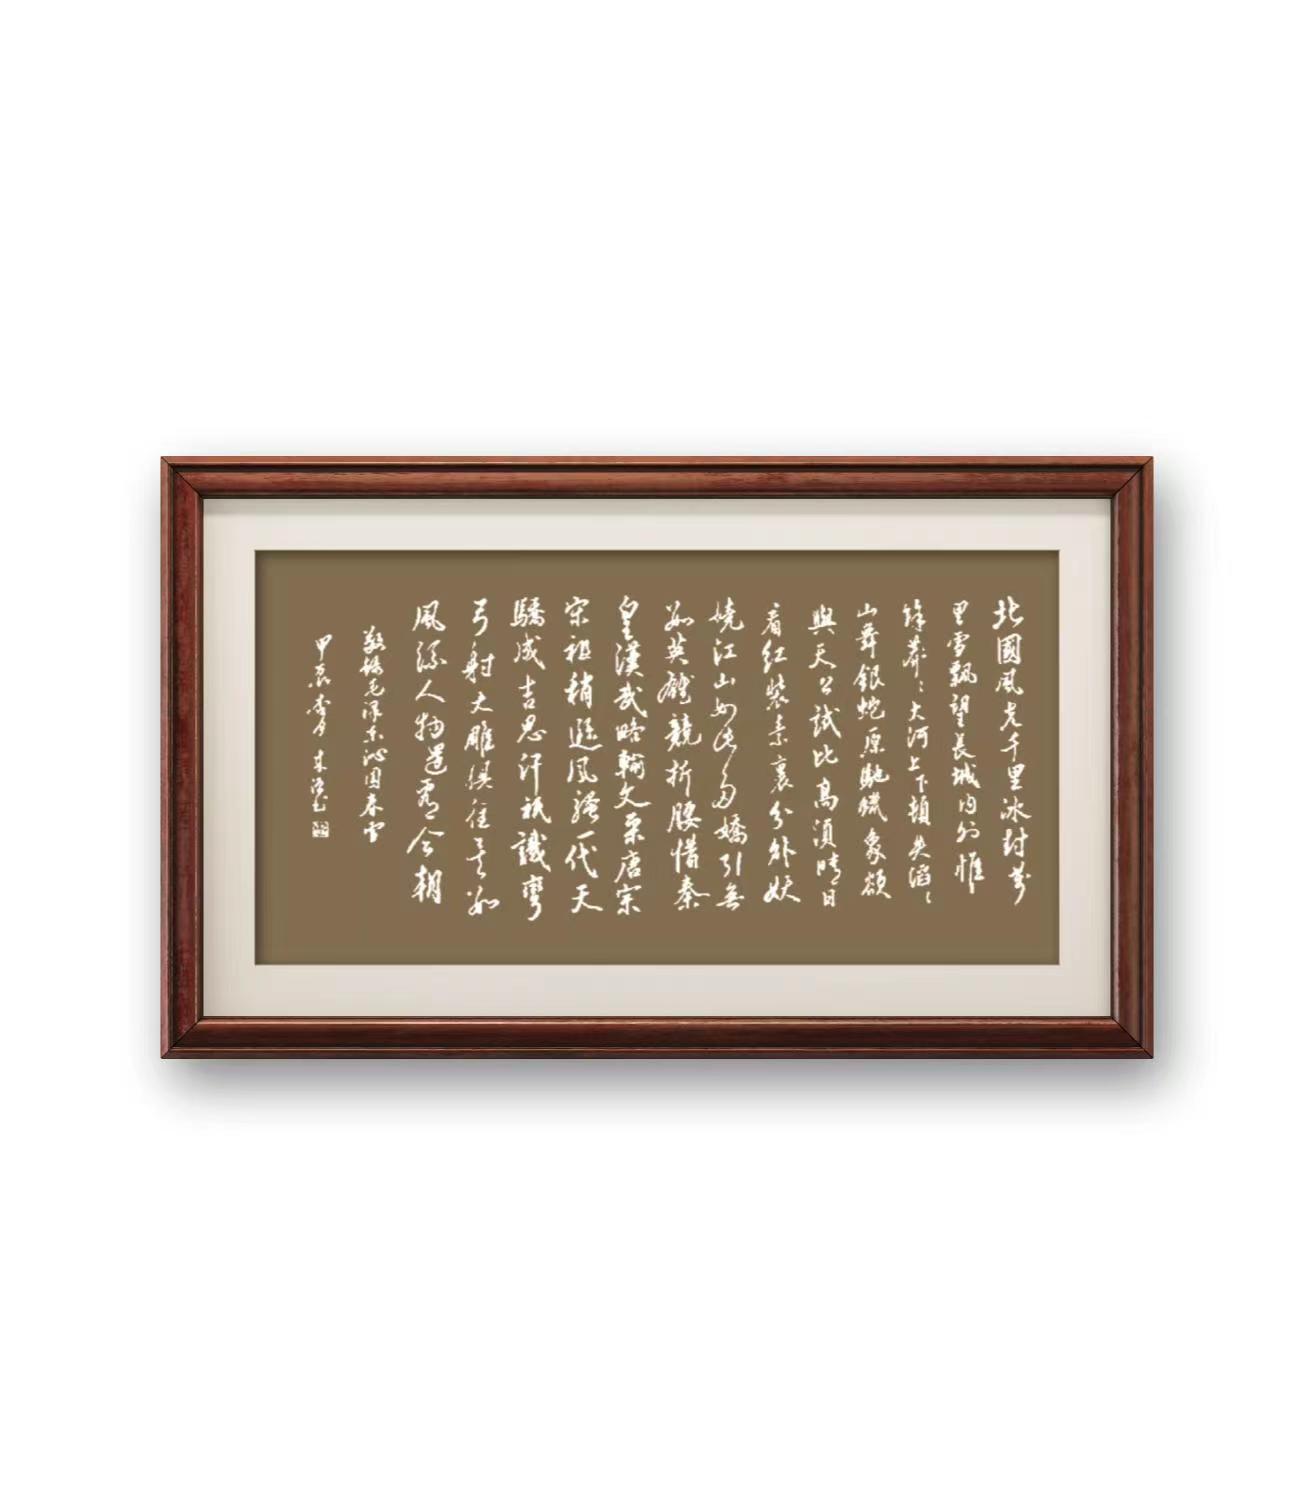 北國風光千里冰封萬
里雪飄望長城内外惟
餘莽〻大河上下頓失滔〻
山舞銀蛇原馳蠟象欲
與天公試比高須晴日
看紅裝素裹分外妖
嬈江山如此多嬌引無
數英雄競折腰惜秦
皇漢武略輸文采唐宗
宋祖稍遜風騷一代天
驕成吉思汗祇識彎
弓射大雕俱往矣數
風流人物還看今朝
敬錄毛澤東沁園春雪
甲辰